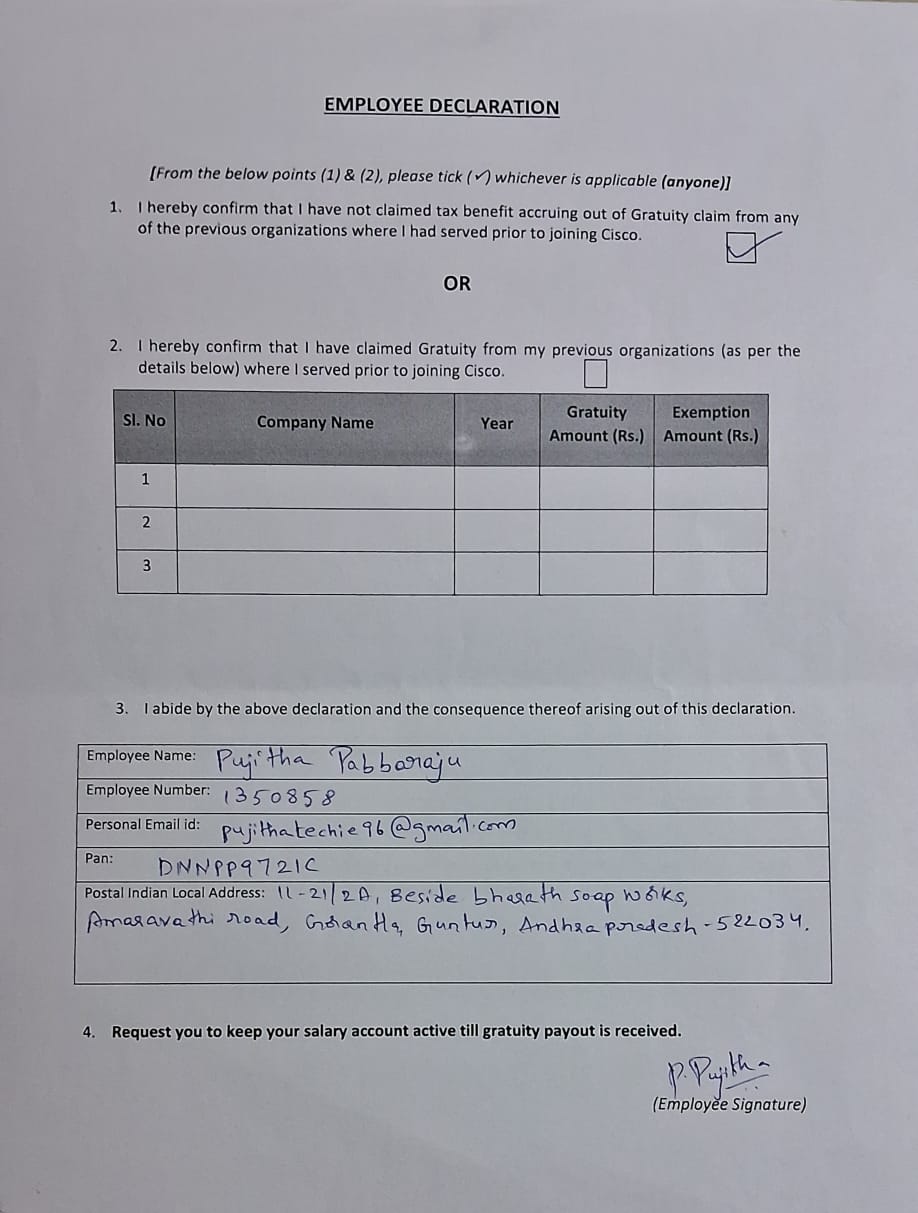 EMPLOYEE DECLARATION
[From the below points (1) & (2), please tick (✓) whichever is applicable (anyone)]
1. I hereby confirm that I have not claimed tax benefit accruing out of Gratuity claim from any
of the previous organizations where I had served prior to joining Cisco. ✓
OR
2. I hereby confirm that I have claimed Gratuity from my previous organizations (as per the
details below) where I served prior to joining Cisco.
Sl. No Company Name Year Gratuity Amount (Rs.) Exemption Amount (Rs.)
1
2
3
3. I abide by the above declaration and the consequence thereof arising out of this declaration.
Employee Name: Pujitha Pabbaraju
Employee Number: 1350858
Personal Email id: pujithatechie96@gmail.com
Pan: DNNPP9721C
Postal Indian Local Address: 11-21/2A, Beside bharath soap works,
Amaravathi road, Gorantla, Guntur, Andhra pradesh - 522034.
4. Request you to keep your salary account active till gratuity payout is received.
P. Pujitha
(Employee Signature)